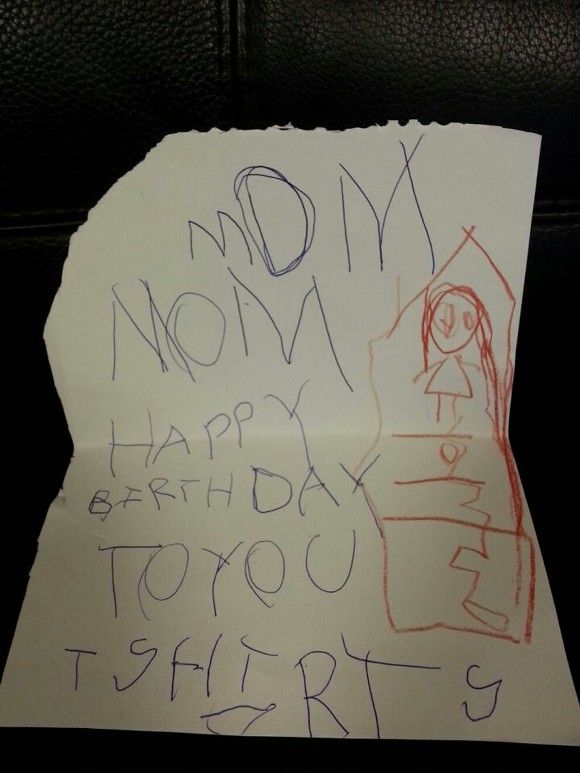 MOM
MOM
HAPPY
BIRTHDAY
TO YOU
T SHIRT S